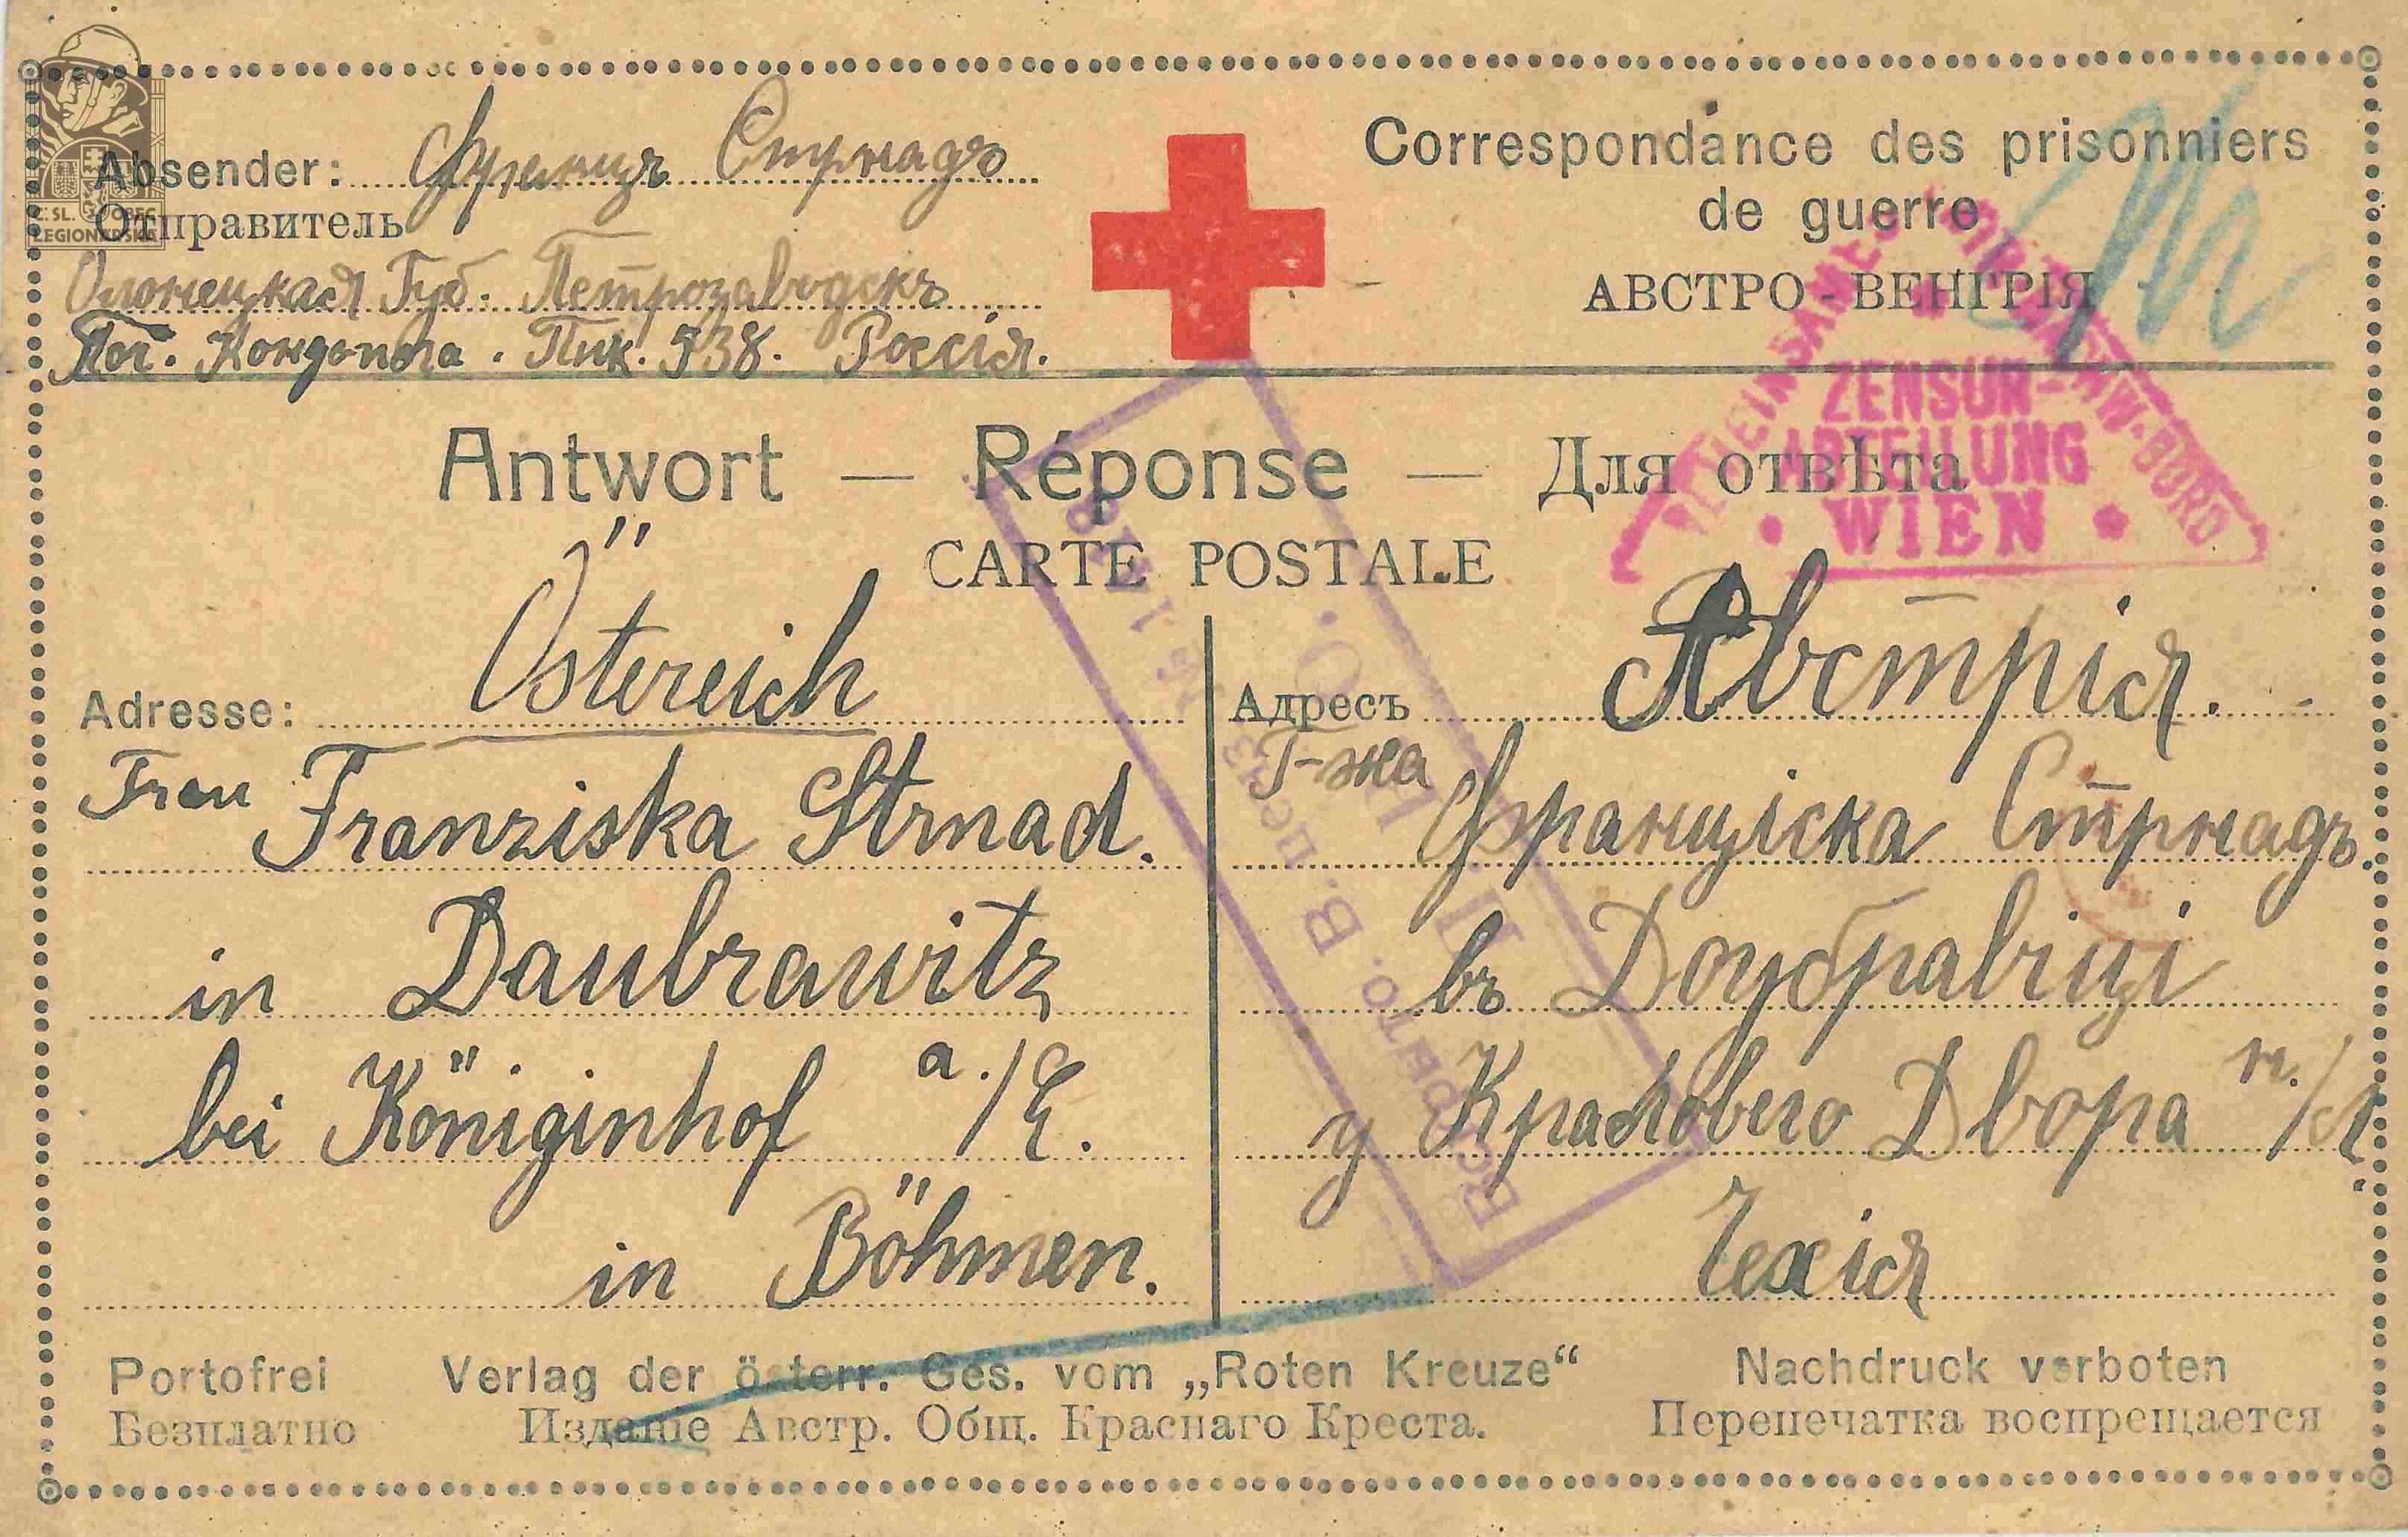 Correspondance des prisonniers
de guerre
АВСТРО-ВЕНГРІЯ
Absender: Францъ Стрнадъ
Отправитель
Олонецкая Губ. Петрозаводскъ
Кондопога. Пик. 538. Россія.
Č. SL. OBEC
LEGIONÁŘSKÁ
ZENSUR-
ABTEILUNG
WIEN
Antwort — Réponse — Для отвѣта
CARTE POSTALE
Adresse: Östereich
Frau Franziska Strnad.
in Daubrawitz
bei Königinhof a./E.
in Böhmen.
Адресъ Австрія.
Г-жа Франціска Стрнадъ.
въ Доубравіці
у Краловего Двора н./Л.
Чехія
Portofrei Verlag der österr. Ges. vom „Roten Kreuze“ Nachdruck verboten
Безплатно Изданіе Австр. Общ. Краснаго Креста. Перепечатка воспрещается